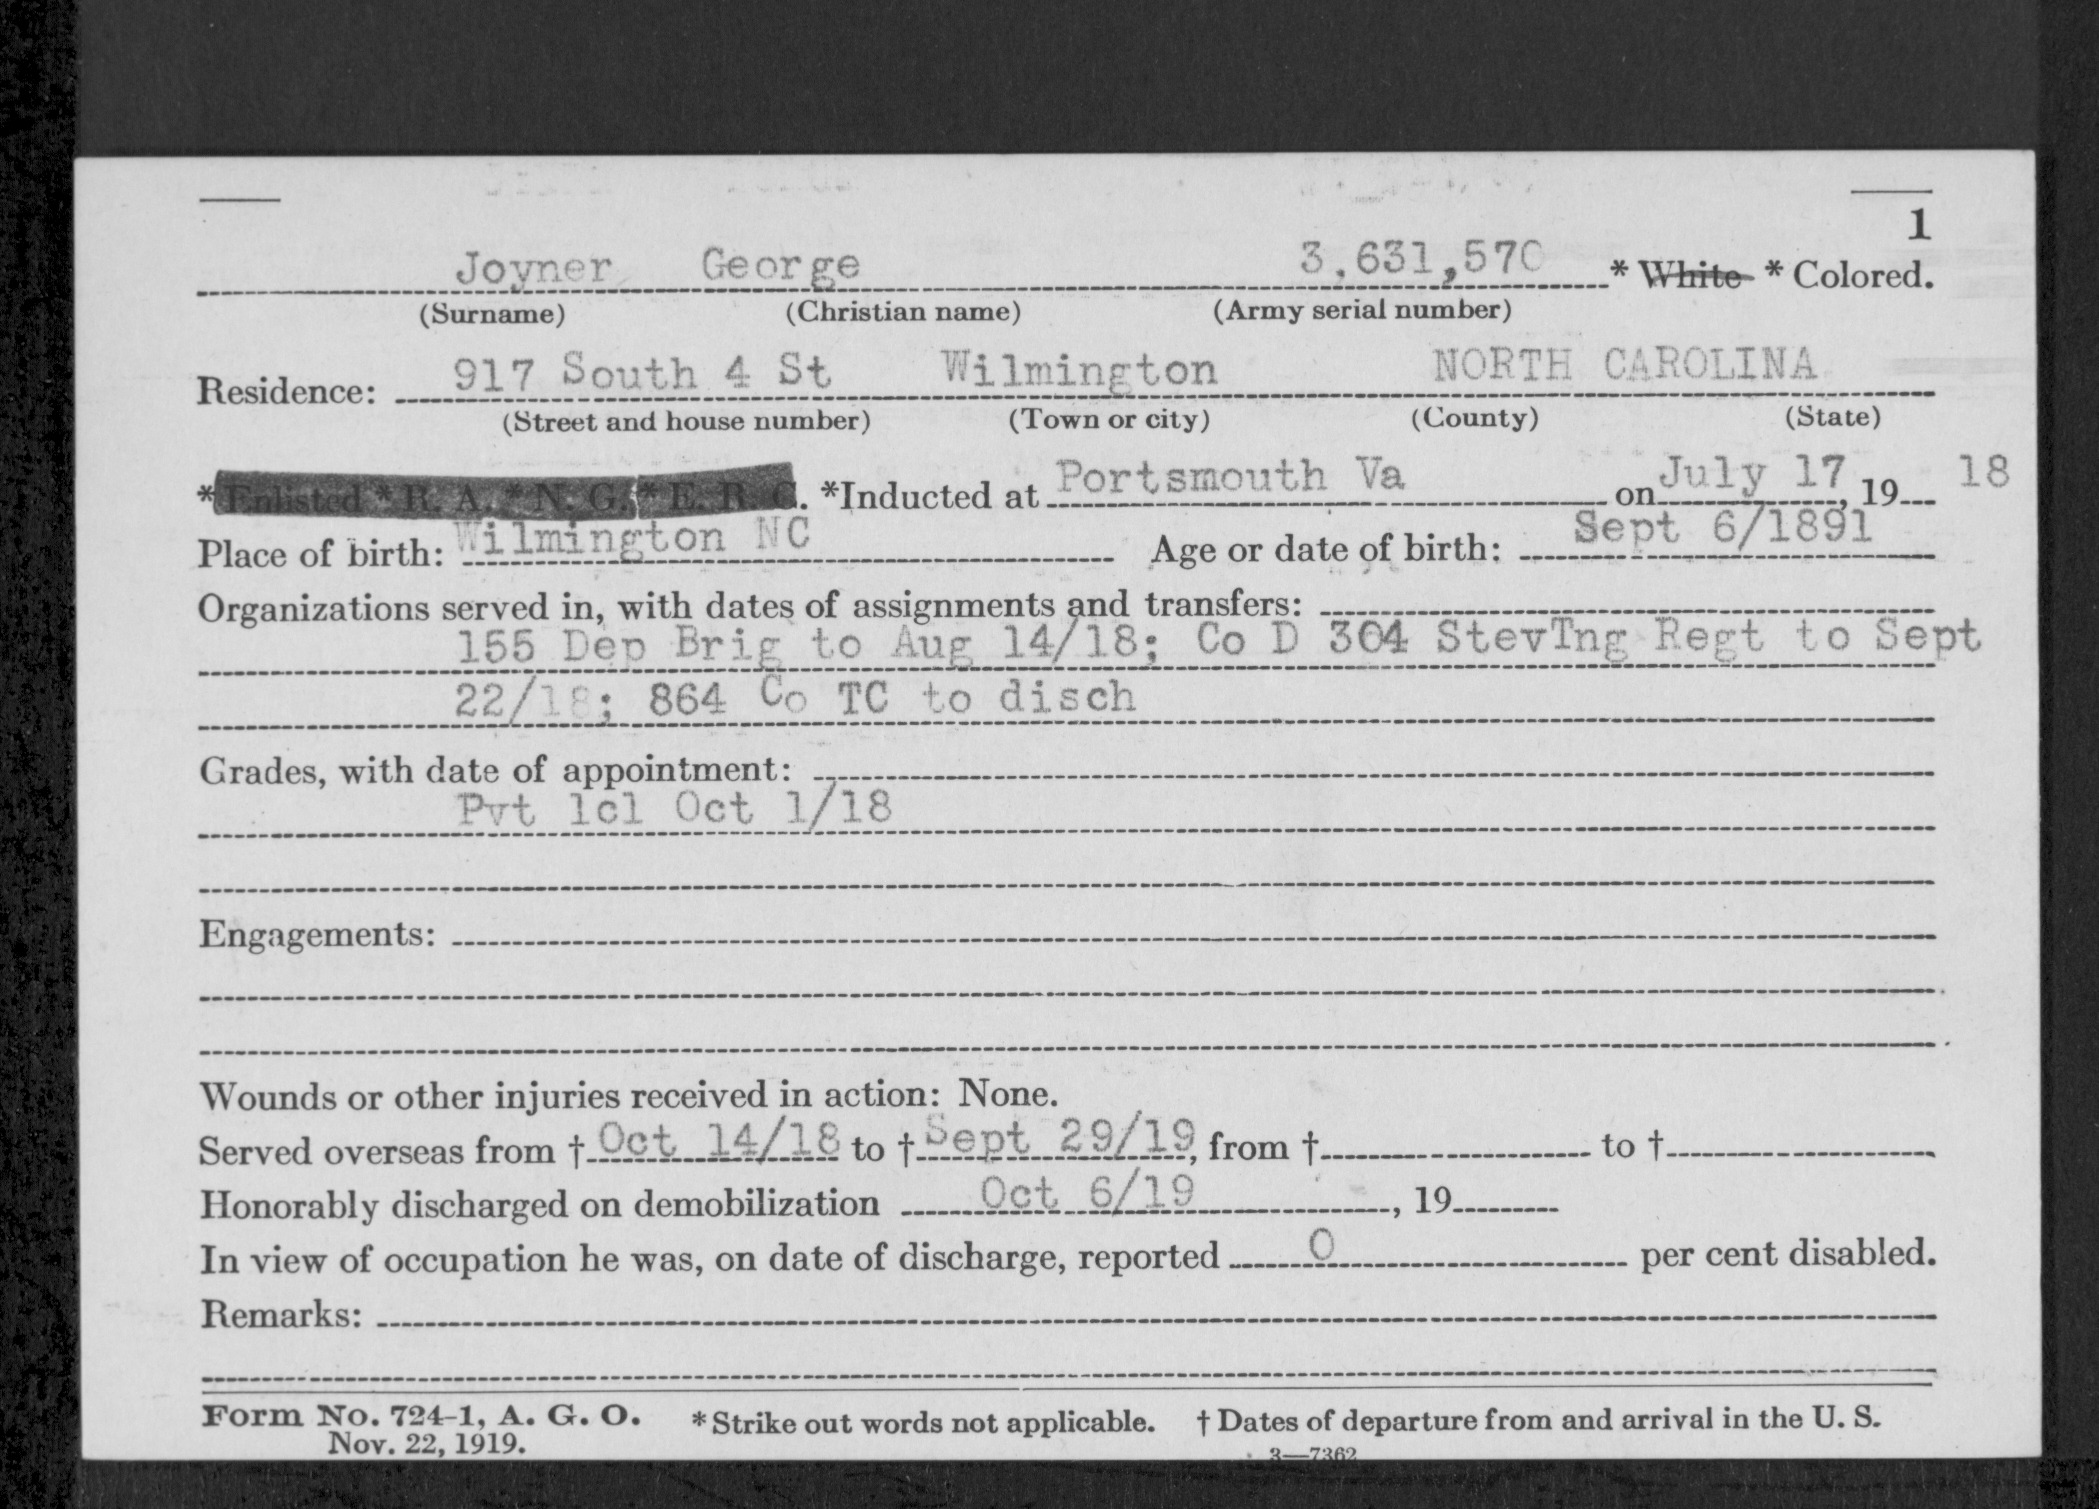 1
Joyner George 3,631,570 * White * Colored.
(Surname) (Christian name) (Army serial number)
Residence: 917 South 4 St Wilmington NORTH CAROLINA
(Street and house number) (Town or city) (County) (State)
*Enlisted * R. A. * N. G. * E. R. C. *Inducted at Portsmouth Va on July 17, 19 18
Place of birth: Wilmington NC Age or date of birth: Sept 6/1891
Organizations served in, with dates of assignments and transfers:
155 Dep Brig to Aug 14/18; Co D 304 StevTng Regt to Sept
22/18; 864 Co TC to disch
Grades, with date of appointment:
Pvt 1cl Oct 1/18
Engagements:
Wounds or other injuries received in action: None.
Served overseas from † Oct 14/18 to † Sept 29/19, from † to †
Honorably discharged on demobilization Oct 6/19, 19
In view of occupation he was, on date of discharge, reported 0 per cent disabled.
Remarks:
Form No. 724-1, A. G. O. * Strike out words not applicable. † Dates of departure from and arrival in the U. S.
Nov. 22, 1919.
3—7362